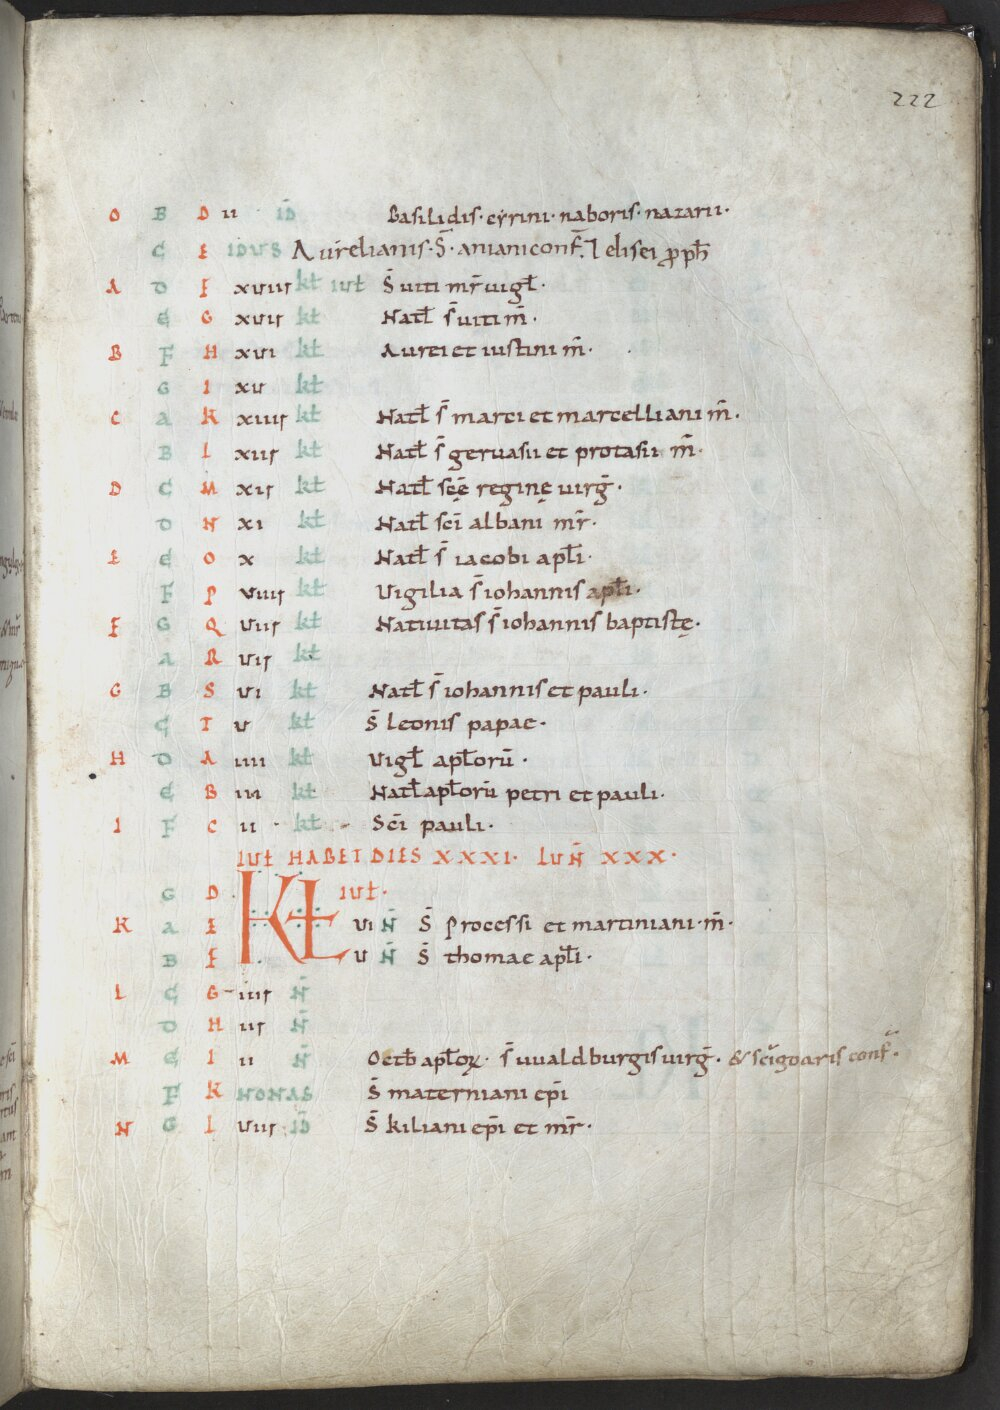 222
O B D ii id Basilidis· cẏrini· naboris· nazarii·
C E IDUS Aurelianis· S̄· aniani conf̄. ⁊ elisei ꝓph̄
A D F xuiii kł iuł S̄ uiti mr̄ uigł·
E G xuii kł Natł s̄ uiti m̄·
B F H xui kł Aurei et iustini m̄·
G I xu kł
C A K xiiii kł Natł s̄ marci et marcelliani m̄·
B L xiii kł Natł s̄ geruasii et protasii m̄·
D C M xii kł Natł sc̄ę reginę uirḡ·
D N xi kł Natł sc̄i albani mr̄·
E E O x kł Natł s̄ iacobi apłi·
F P uiiii kł Uigilia s̄ iohannis apłi·
F G Q uiii kł Natiuitas s̄ iohannis baptistę·
A R uii kł
G B S ui kł Natł s̄ iohannis et pauli·
C T u kł S̄ leonis papae·
H D A iiii kł Uigł apłorū·
E B iii kł Natł apłorū petri et pauli·
I F C ii · kł Sc̄i pauli·
IUŁ HABET DIES XXXI· LUN̄ XXX·
G D KŁ IUŁ·
K A E ui N̄ S̄ Processi et martiniani· m̄·
B F u N̄ S̄ thomae apłi·
L C G iiii N̄
D H iii N̄
M E I ii N̄ Octb̄ apłoꝝ· s̄ uualdburgis uirḡ· & sc̄i goaris conf̄·
F K NONAS S̄ materniani ep̄i
N G L uiii id S̄ kiliani ep̄i et mr̄·